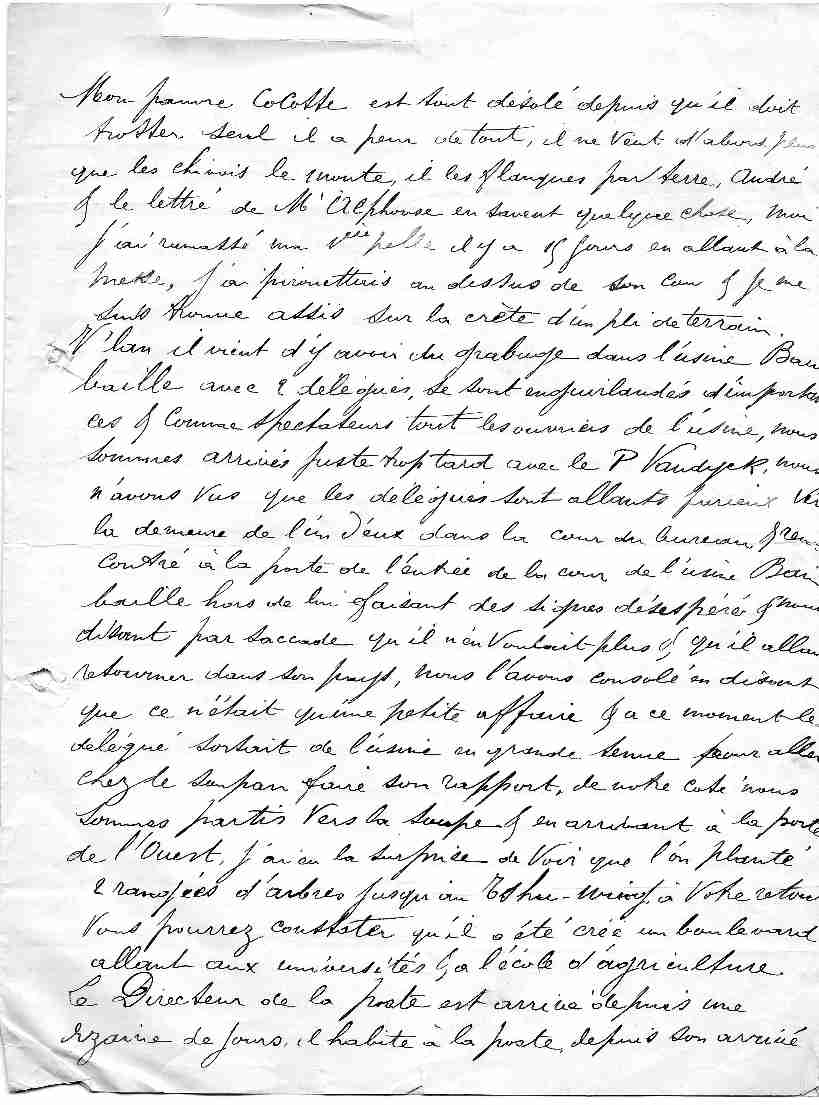 Mon pauvre Cocotte est tout désolé depuis qu'il doit
trotter seul il a peur de tout, il ne veut d'abord plus
que les chinois le monte, il les flanques par terre, André
& le lettré de Mr Alphonse en savent quelque chose, moi
j'ai ramassé ma pelle il y a 15 jours en allant à la
messe, j'ai pirouetté au dessus de son cou & je me
suis trouve assis sur la crète d'un pli de terrain.
V'lan il vient d'y avoir du grabuge dans l'usine
baille avec 2 délégués, se sont enguirlandés d'importan
ces & comme spectateurs tout les ouvriers de l'usine, nous
sommes arrivés juste trop tard avec le P Vandyck, nous
n'avons vus que les délégués sont allants furieux ver
la demeure de l'un d'eux dans la cour du bureau, & ren
contré à la porte de l'entrée de la cour de l'usine
baille hors de lui faisant des signes désespéré & nous
disant par saccade qu'il n'en voulait plus & qu'il allai
retourner dans son pays, nous l'avons consolé en disant
que ce n'était qu'une petite affaire & a ce moment le
délégué sortait de l'usine en grande tenue pour aller
chez le taupan faire son rapport, de notre coté nous
sommes partis vers la soupe & en arrivant à la porte
de l'Ouest, j'ai eu la surprise de voir que l'on planté
2 rangées d'arbres jusqu'au à votre retour
vous pourrez constater qu'il a été crée un boulevard
allant aux universités & a l'école d'agriculture.
Le Directeur de la poste est arrivé depuis une
dizaine de jours, il habite à la poste, depuis son arrivé